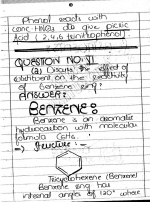 Phenol reacts with
conc HNO3 to give picric
Acid (2,4,6 trinitrophenol)
QUESTION NO. VI
(a) Discuss the effect of
substituent on the reactivity
of benzene ring?
ANSWER:
BENZENE:
Benzene is an aromatic
hydrocarbon with molecular
formula C6H6.
=> Structure:-
(Benzene)
Benzene ring has
internal angles of 120° where